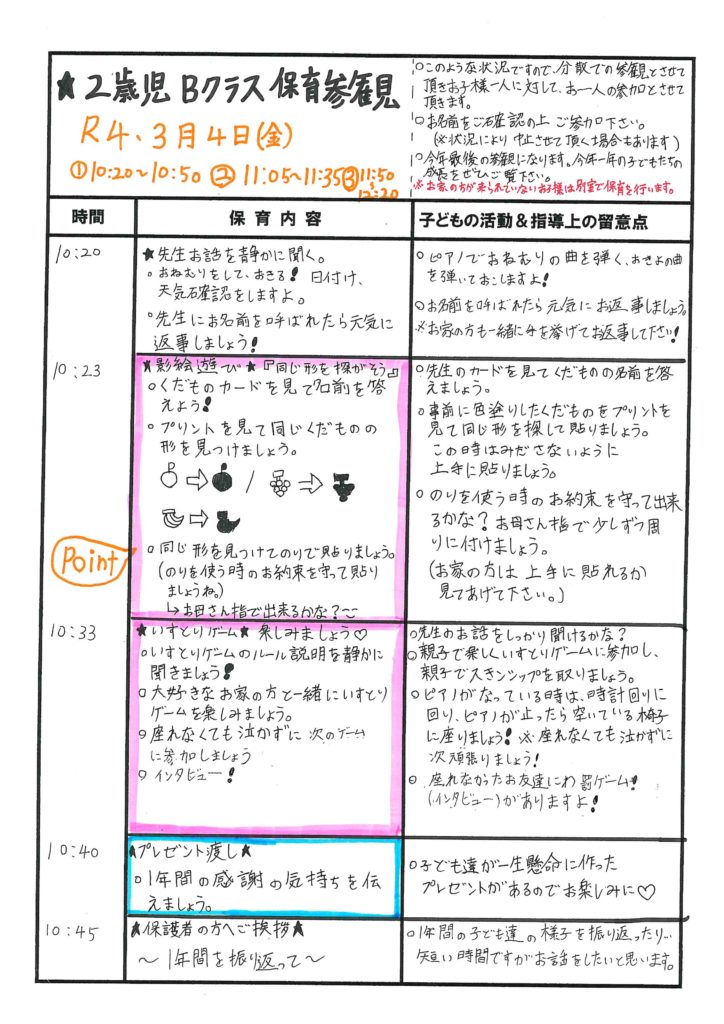 ★2歳児 Bクラス 保育参観
R4.3月4日(金)
①10:20~10:50 ②11:05~11:35 ③11:50~12:20
○このような状況ですので、分散での参観とさせて
頂きお子様一人に対して、お一人の参加とさせて
頂きます。
○お名前をご確認の上ご参加下さい。
(※状況により中止させて頂く場合もあります)
○今年最後の参観になります。今年一年の子どもたちの
成長をぜひご覧下さい。
※お家の方が来られていないお子様は別室で保育を行います。
時間
保育内容
子どもの活動&指導上の留意点
10:20
★先生お話を静かに聞く。
○おねむりをして、おきる!日付け、
天気確認をしますよ。
○先生にお名前を呼ばれたら元気に
返事しましょう!
○ピアノでおねむりの曲を弾く、おきよの曲
を弾いておこしますよ!
○お名前を呼ばれたら元気にお返事しましょう。
※お家の方も一緒に手を挙げてお返事して下さい!
10:23
★影絵遊び★『同じ形を探がそう』
○くだものカードを見て名前を答
えよう!
○プリントを見て同じくだものの
形を見つけましょう。
Point
○同じ形を見つけてのりで貼りましょう。
(のりを使う時のお約束を守って貼り
ましょうね。)
↳お母さん指で出来るかな?~
○先生のカードを見てくだものの名前を答
えましょう。
○事前に色塗りしたくだものをプリントを
見て同じ形を探して貼りましょう。
この時はみださないように
上手に貼りましょう。
○のりを使う時のお約束を守って出来
るかな?お母さん指で少しずつ周
りに付けましょう。
(お家の方は上手に貼れるか
見てあげて下さい。)
10:33
★いすとりゲーム★楽しみましょう♡
○いすとりゲームのルール説明を静かに
聞きましょう!
○大好きなお家の方と一緒にいすとり
ゲームを楽しみましょう。
○座れなくても泣かずに次のゲーム
に参加しましょう
○インタビュー!
○先生のお話をしっかり聞けるかな?
○親子で楽しくいすとりゲームに参加し、
親子でスキンシップを取りましょう。
○ピアノがなっている時は、時計回りに
回り、ピアノが止ったら空いている椅子
に座りましょう!※座れなくても泣かずに
次頑張りましょう!
○座れなかったお友達にわ罰ゲーム!
(インタビュー)がありますよ!
10:40
★プレゼント渡し★
○1年間の感謝の気持ちを伝
えましょう。
○子ども達が一生懸命に作った
プレゼントがあるのでお楽しみに♡
10:45
★保護者の方へご挨拶★
~1年間を振り返って~
○1年間の子ども達の様子を振り返ったり…
短い時間ですがお話をしたいと思います。